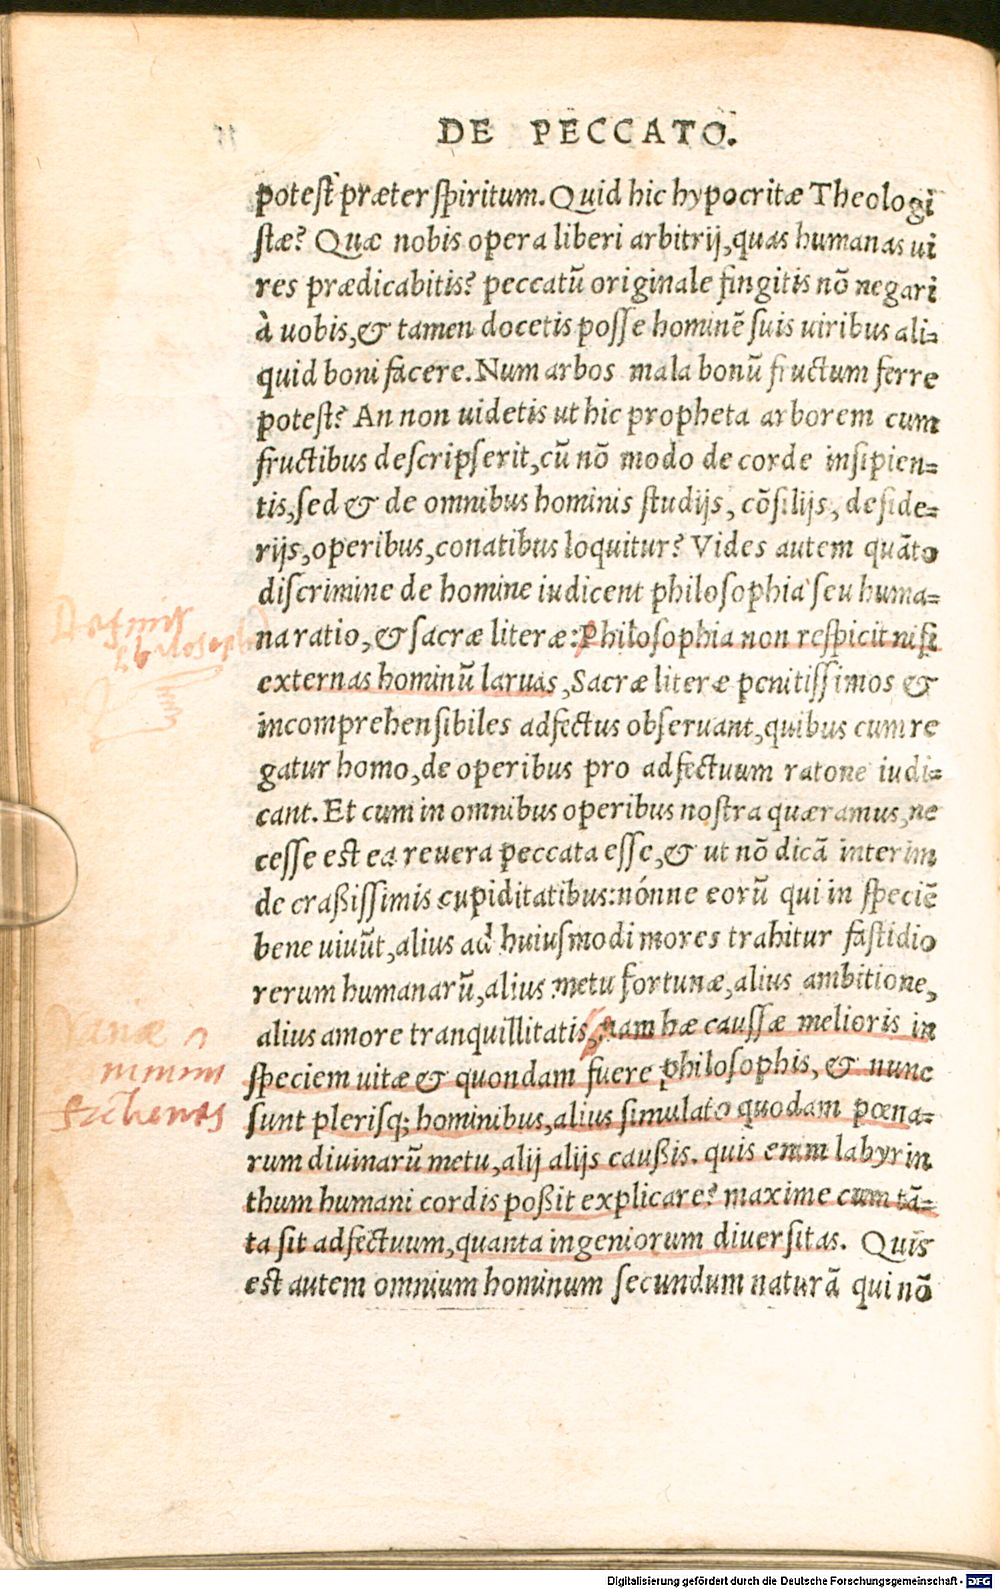 DE PECCATO.
potest præter spiritum. Quid hic hypocritæ Theologi
stæ? Quæ nobis opera liberi arbitrij, quas humanas ui
res prædicabitis? peccatū originale fingitis nō negari
à uobis, & tamen docetis posse hominē suis uiribus ali-
quid boni facere. Num arbos mala bonū fructum ferre
potest? An non uidetis ut hic propheta arborem cum
fructibus descripserit, cū nō modo de corde insipien-
tis, sed & de omnibus hominis studijs, cōsilijs, deside-
rijs, operibus, conatibus loquitur? Vides autem quāto
discrimine de homine iudicent philosophia seu huma-
na ratio, & sacræ literæ: Philosophia non respicit nisi
externas hominū laruas, Sacræ literæ penitissimos &
incomprehensibiles adfectus obseruant, quibus cum re
gatur homo, de operibus pro adfectuum ratone iudi-
cant. Et cum in omnibus operibus nostra quæramus, ne
cesse est ea reuera peccata esse, & ut nō dicā interim
de craßissimis cupiditatibus: nónne eorū qui in speciē
bene uiuūt, alius ad huiusmodi mores trahitur fastidio
rerum humanarū, alius metu fortunæ, alius ambitione,
alius amore tranquillitatis, nam hæ caussæ melioris in
speciem uitæ & quondam fuere philosophis, & nunc
sunt plerisq; hominibus, alius simulato quodam pœna-
rum diuinarū metu, alij alijs caußis. quis enim labyrin
thum humani cordis poßit explicare? maxime cum tā-
ta sit adfectuum, quanta ingeniorum diuersitas. Quis
est autem omnium hominum secundum naturā qui nō
Digitalisierung gefördert durch die Deutsche Forschungsgemeinschaft - DFG